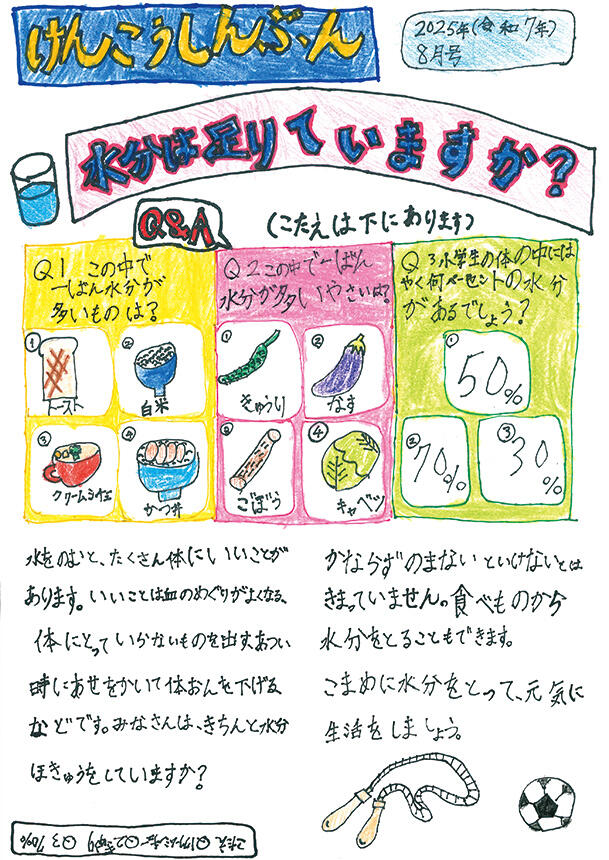 けんこうしんぶん
2025年(令和7年)
8月号
水分は足りていますか?
Q&A
(こたえは下にあります)
Q1 この中で
一ばん水分が
多いものは?
①
トースト
②
白米
③
クリームシチュー
④
かつ丼
Q2 この中で一ばん
水分が多いやさいは?
①
きゅうり
②
なす
③
ごぼう
④
キャベツ
Q3 小学生の体の中には
やく何パーセントの水分
があるでしょう?
①
50%
②
70%
③
30%
水をのむと、たくさん体にいいことが
あります。いいことは血のめぐりがよくなる、
体にとっていらないものを出す、あつい
時にあせをかいて体おんを下げる
などです。みなさんは、きちんと水分
ほきゅうをしていますか?
かならずのまないといけないとは
きまっていません。食べものから
水分をとることもできます。
こまめに水分をとって、元気に
生活をしましょう。
こたえ Q1クリームシチュー Q2きゅうり Q3 70%